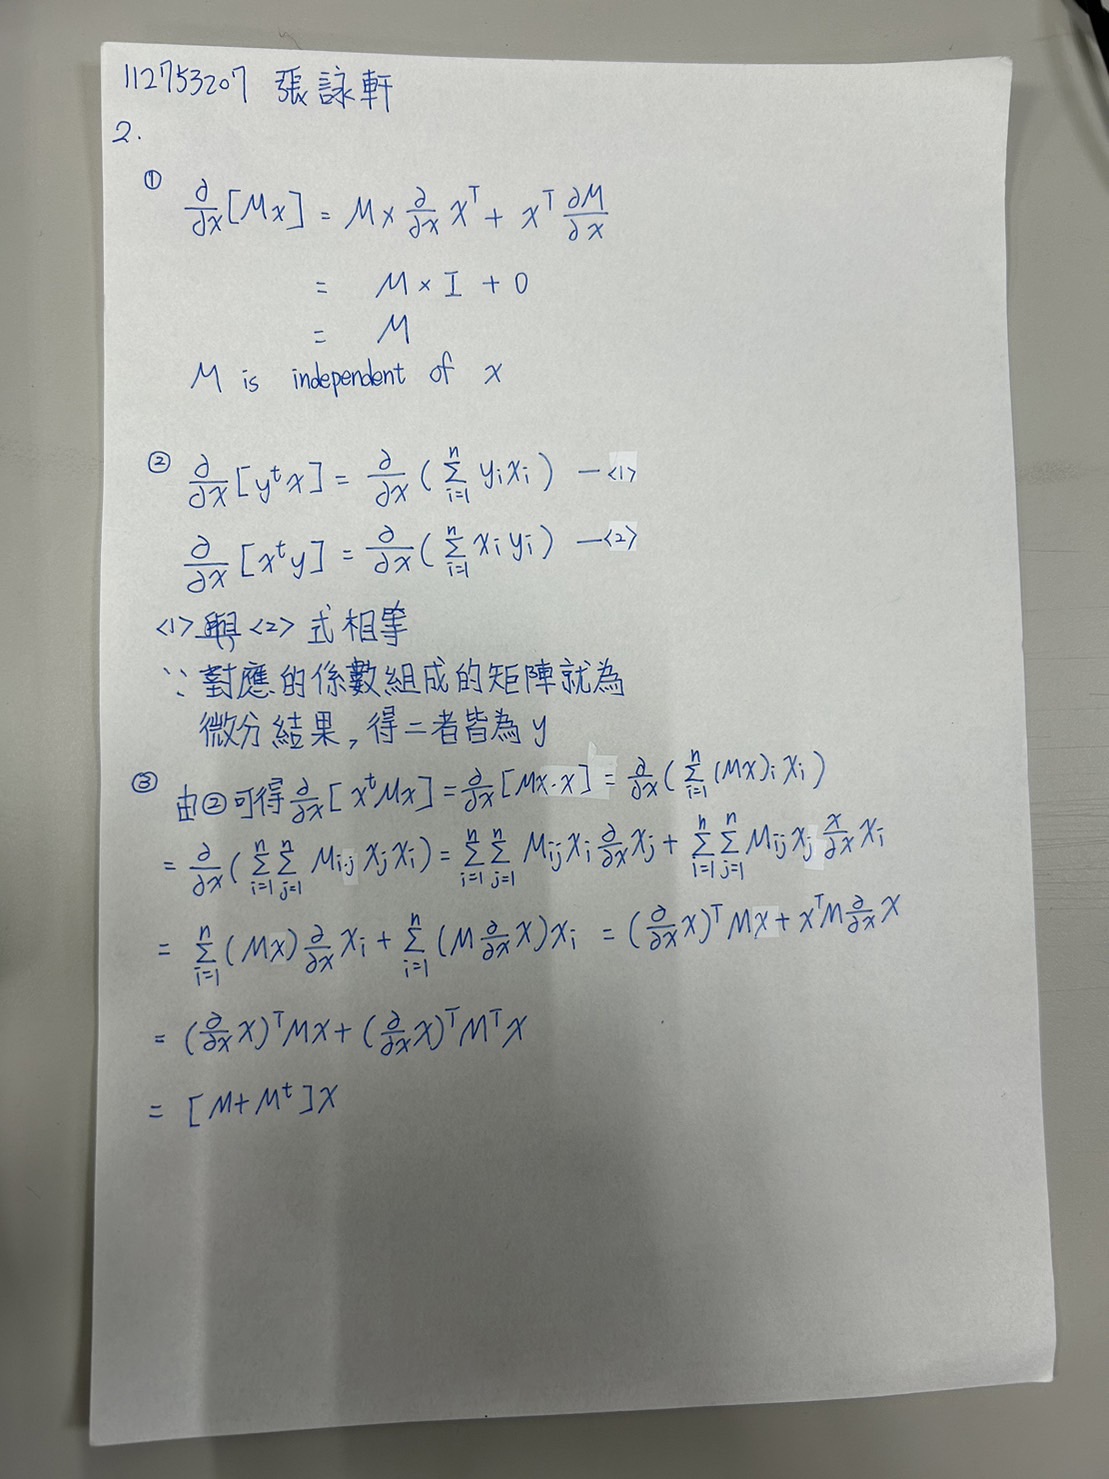 112753207 張詠軒
2.
① ∂/∂x [Mx] = M × ∂/∂x xᵀ + xᵀ ∂M/∂x
= M × I + 0
= M
M is independent of x
② ∂/∂x [yᵗx] = ∂/∂x ( Σ_{i=1}^{n} yᵢxᵢ ) —<1>
∂/∂x [xᵗy] = ∂/∂x ( Σ_{i=1}^{n} xᵢyᵢ ) —<2>
<1> 與 <2> 式相等
∵ 對應的係數組成的矩陣就為
微分結果, 得二者皆為 y
③ 由②可得 ∂/∂x [xᵗMx] = ∂/∂x [Mx·x] = ∂/∂x ( Σ_{i=1}^{n} (Mx)ᵢ xᵢ )
= ∂/∂x ( Σ_{i=1}^{n} Σ_{j=1}^{n} Mᵢⱼ xⱼ xᵢ ) = Σ_{i=1}^{n} Σ_{j=1}^{n} Mᵢⱼ xᵢ ∂/∂x xⱼ + Σ_{i=1}^{n} Σ_{j=1}^{n} Mᵢⱼ xⱼ x/∂x xᵢ
= Σ_{i=1}^{n} (Mx) ∂/∂x xᵢ + Σ_{i=1}^{n} (M ∂/∂x x) xᵢ = (∂/∂x x)ᵀ Mx + xᵀM ∂/∂x x
= (∂/∂x x)ᵀ Mx + (∂/∂x x)ᵀ Mᵀx
= [M+Mᵗ]x